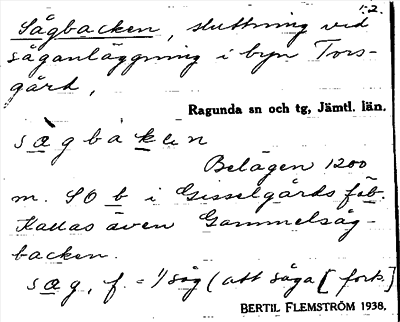 1:2.
Sågbacken, sluttning vid
såganläggning i byn Tors-
gård,
Ragunda sn och tg, Jämtl. län.
sægbakken
Belägen 1200
m. SO b i Gisselgårds fäb.
Kallas även Gammelsåg-
backen.
sæg, f. = 1/ såg (att såga [ forts.]
BERTIL FLEMSTRÖM 1938.